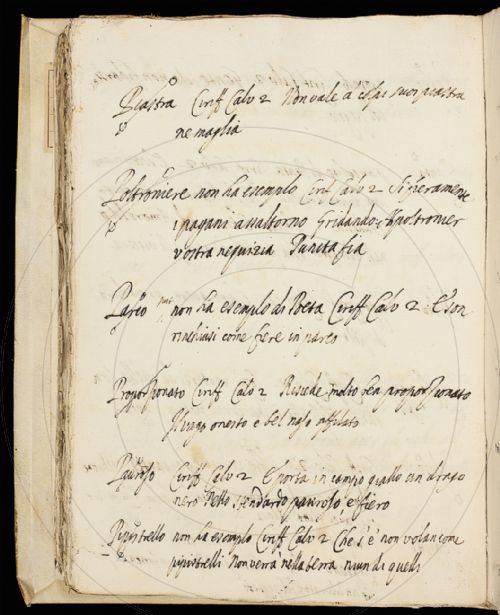 Piastra Ciriff Calv 2 Non vale a colpi suoi piastra
ne maglia
Poltroniere non ha esempio Ciriff Calv 2 Si fieramente
i pagani assaltorno Gridando poltronier
vostra nequizia Punita fia
Parco non ha esempio di Poeta Ciriff Calv 2 E son
rinchiusi come fiere in parco
Proporzionato Ciriff Calv 2 Risiede molto proporzionato
Il viso onesto e bel naso affilato
Pauroso Ciriff Calv 2 E porta in campo giallo un drago
nero Nello stendardo pauroso e fiero
Pipistrello non ha esempio Ciriff Calv 2 Che s'e non volan come
pipistrelli Non verrà nella terra niun di quelli